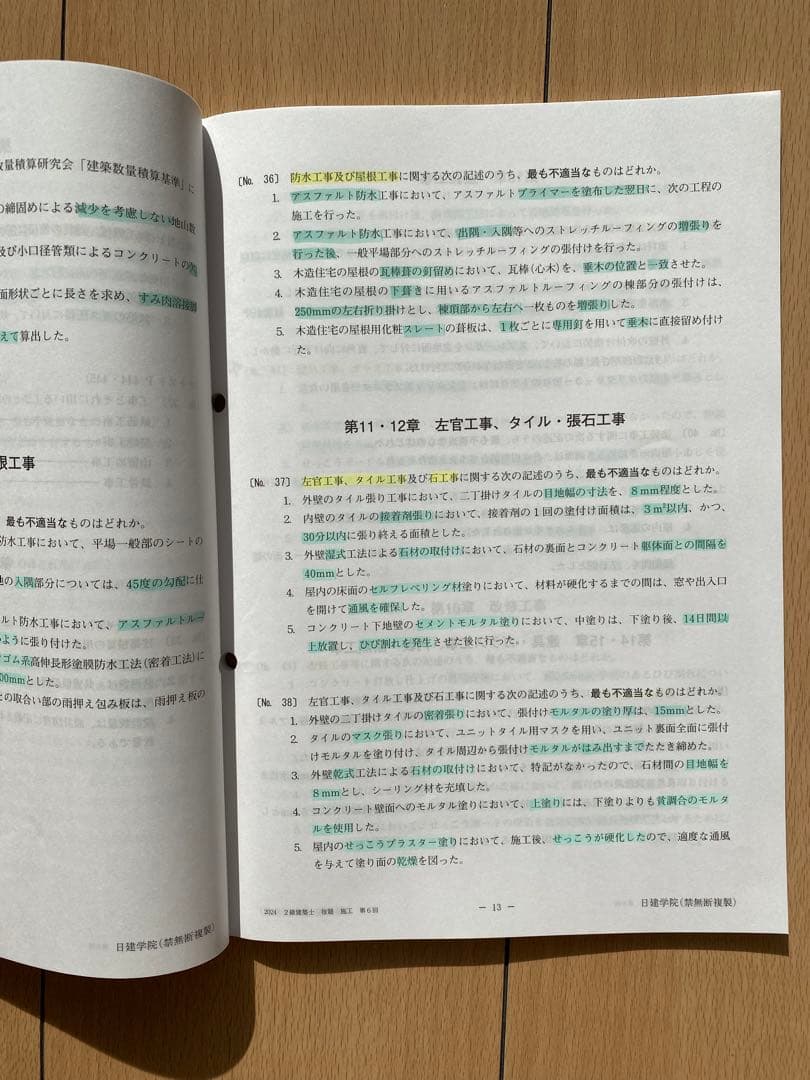 数量積算研究会「建築数量積算基準」に
の締固めによる減少を考慮しない地山数
及び小口径管類によるコンクリートの欠
面形状ごとに長さを求め、すみ肉溶接脚
えて算出した。
根工事
最も不適当なものはどれか。
防水工事において、平場一般部のシートの
地の入隅部分については、45度の勾配に仕
ルト防水工事において、アスファルトルー
ように張り付けた。
ゴム系高伸長形塗膜防水工法(密着工法)に
00mmとした。
との取合い部の雨押え包み板は、雨押え板の
日建学院(禁無断複製)
〔No. 36〕 防水工事及び屋根工事に関する次の記述のうち、最も不適当なものはどれか。
1. アスファルト防水工事において、アスファルトプライマーを塗布した翌日に、次の工程の
施工を行った。
2. アスファルト防水工事において、出隅・入隅等へのストレッチルーフィングの増張りを
行った後、一般平場部分へのストレッチルーフィングの張付けを行った。
3. 木造住宅の屋根の瓦棒葺の釘留めにおいて、瓦棒(心木)を、垂木の位置と一致させた。
4. 木造住宅の屋根の下葺きに用いるアスファルトルーフィングの棟部分の張付けは、
250mmの左右折り掛けとし、棟頂部から左右へ一枚ものを増張りした。
5. 木造住宅の屋根用化粧スレートの葺板は、1枚ごとに専用釘を用いて垂木に直接留め付け
た。
第11・12章 左官工事、タイル・張石工事
〔No. 37〕 左官工事、タイル工事及び石工事に関する次の記述のうち、最も不適当なものはどれか。
1. 外壁のタイル張り工事において、二丁掛けタイルの目地幅の寸法を、8mm程度とした。
2. 内壁のタイルの接着剤張りにおいて、接着剤の1回の塗付け面積は、3㎡以内、かつ、
30分以内に張り終える面積とした。
3. 外壁湿式工法による石材の取付けにおいて、石材の裏面とコンクリート躯体面との間隔を
40mmとした。
4. 屋内の床面のセルフレベリング材塗りにおいて、材料が硬化するまでの間は、窓や出入口
を開けて通風を確保した。
5. コンクリート下地壁のセメントモルタル塗りにおいて、中塗りは、下塗り後、14日間以
上放置し、ひび割れを発生させた後に行った。
〔No. 38〕 左官工事、タイル工事及び石工事に関する次の記述のうち、最も不適当なものはどれか。
1. 外壁の二丁掛けタイルの密着張りにおいて、張付けモルタルの塗り厚は、15mmとした。
2. タイルのマスク張りにおいて、ユニットタイル用マスクを用い、ユニット裏面全面に張付
けモルタルを塗り付け、タイル周辺から張付けモルタルがはみ出すまでたたき締めた。
3. 外壁乾式工法による石材の取付けにおいて、特記がなかったので、石材間の目地幅を
8mmとし、シーリング材を充填した。
4. コンクリート壁面へのモルタル塗りにおいて、上塗りには、下塗りよりも貧調合のモルタ
ルを使用した。
5. 屋内のせっこうプラスター塗りにおいて、施工後、せっこうが硬化したので、適度な通風
を与えて塗り面の乾燥を図った。
2024 2級建築士 宿題 施工 第6回
－ 13 －
日建学院(禁無断複製)